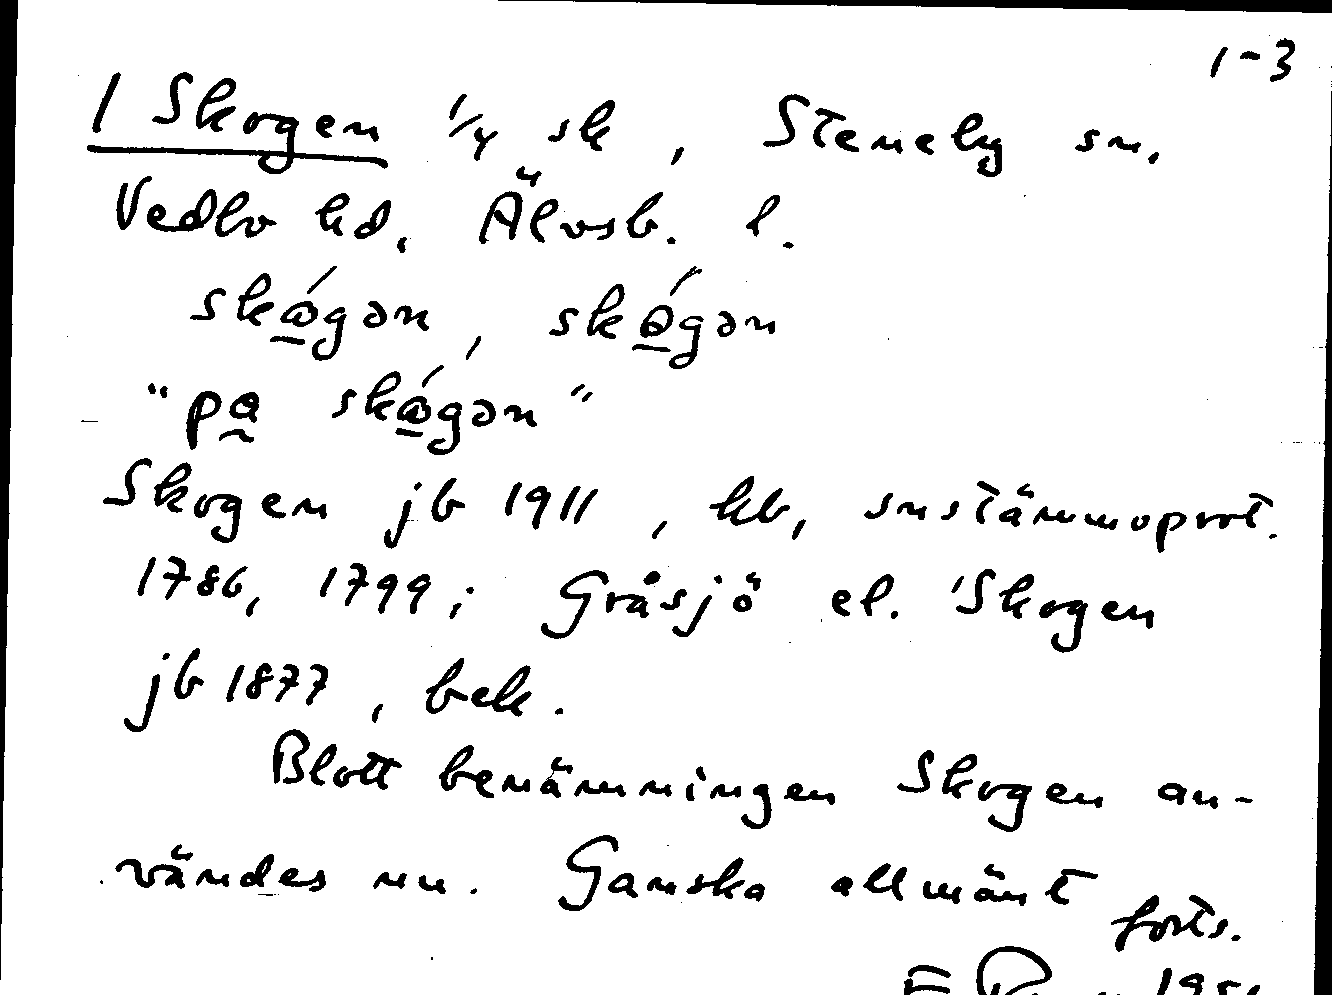 1-3
1 Skogen 1/4 sk, Steneby sn.
Vedbo hd, Älvsb. l.
skó̱gən, skó̱gən
"pa̰ skó̱gən"
Skogen jb 1911, kb, snstämmoprot.
1786, 1799; Gråsjö el. Skogen
jb 1877, bek.
Blott benämningen Skogen an-
vändes nu. Ganska allmänt
forts.